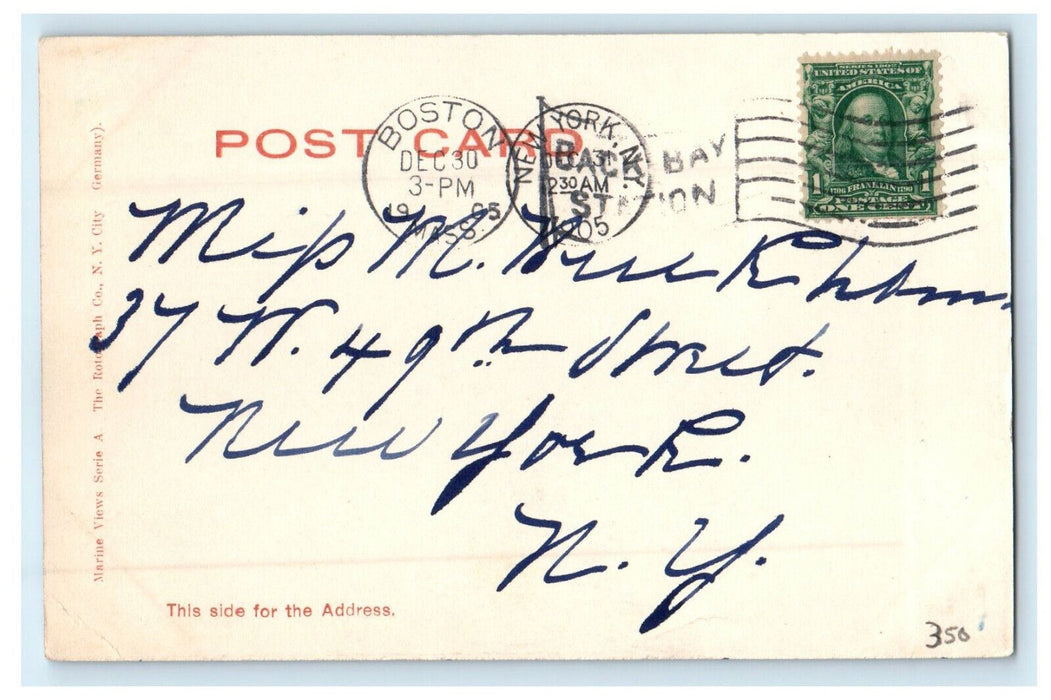 POST CARD
BOSTON
DEC 30
3-PM
MASS.
NEW YORK, N.Y.
DEC 31
2 30 AM
1905
BACK BAY
STATION
SERIES 1902
UNITED STATES OF
AMERICA
1 1706 FRANKLIN 1790 1
POSTAGE
ONE CENT
Marine Views Serie A. The Rotograph Co., N. Y. City Germany).
Miss M.
37 W. 49th Street.
New York.
N. Y.
This side for the Address.
350